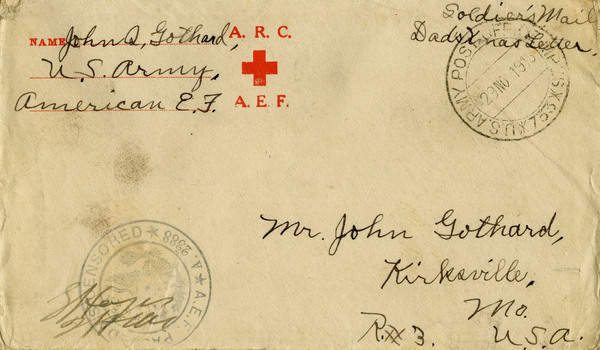 Soldier's Mail
Dad's Xmas Letter.
NAME John A. Gothard, A. R. C.
U.S. Army,
American E. F. A. E. F.
U.S. ARMY POST OFFICE
29 NO 1918
753
Mr. John Gothard,
Kirksville,
Mo.
R. # 3. U.S.A.
CENSORED A. 2688 A.E.F.